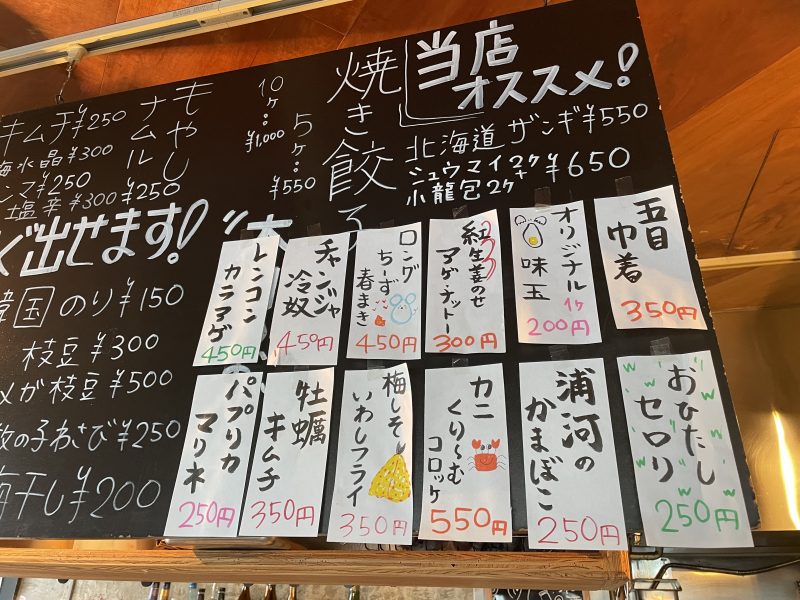 当店
オススメ!
北海道ザンギ¥550
シュウマイ2ケ+
小龍包2ケ ¥650
焼き餃子
5ケ: ¥550
10ケ: ¥1,000
もやし
ナムル
¥250
キムチ¥250
水晶¥300
¥250
塩辛¥300
出せます!
韓国のり¥150
枝豆¥300
メガ枝豆¥500
数の子わさび¥250
梅干し¥200
五目
巾着
350円
オリジナル
味玉
1ケ
200円
紅生姜のせ
アゲナットー
300円
ロング
ちーず
春まき
450円
チャンジャ
冷奴
450円
レンコン
カラアゲ
450円
おひたし
セロリ
250円
浦河の
かまぼこ
250円
カニ
くり〜む
コロッケ
550円
梅しそ
いわしフライ
350円
牡蠣
キムチ
350円
パプリカ
マリネ
250円